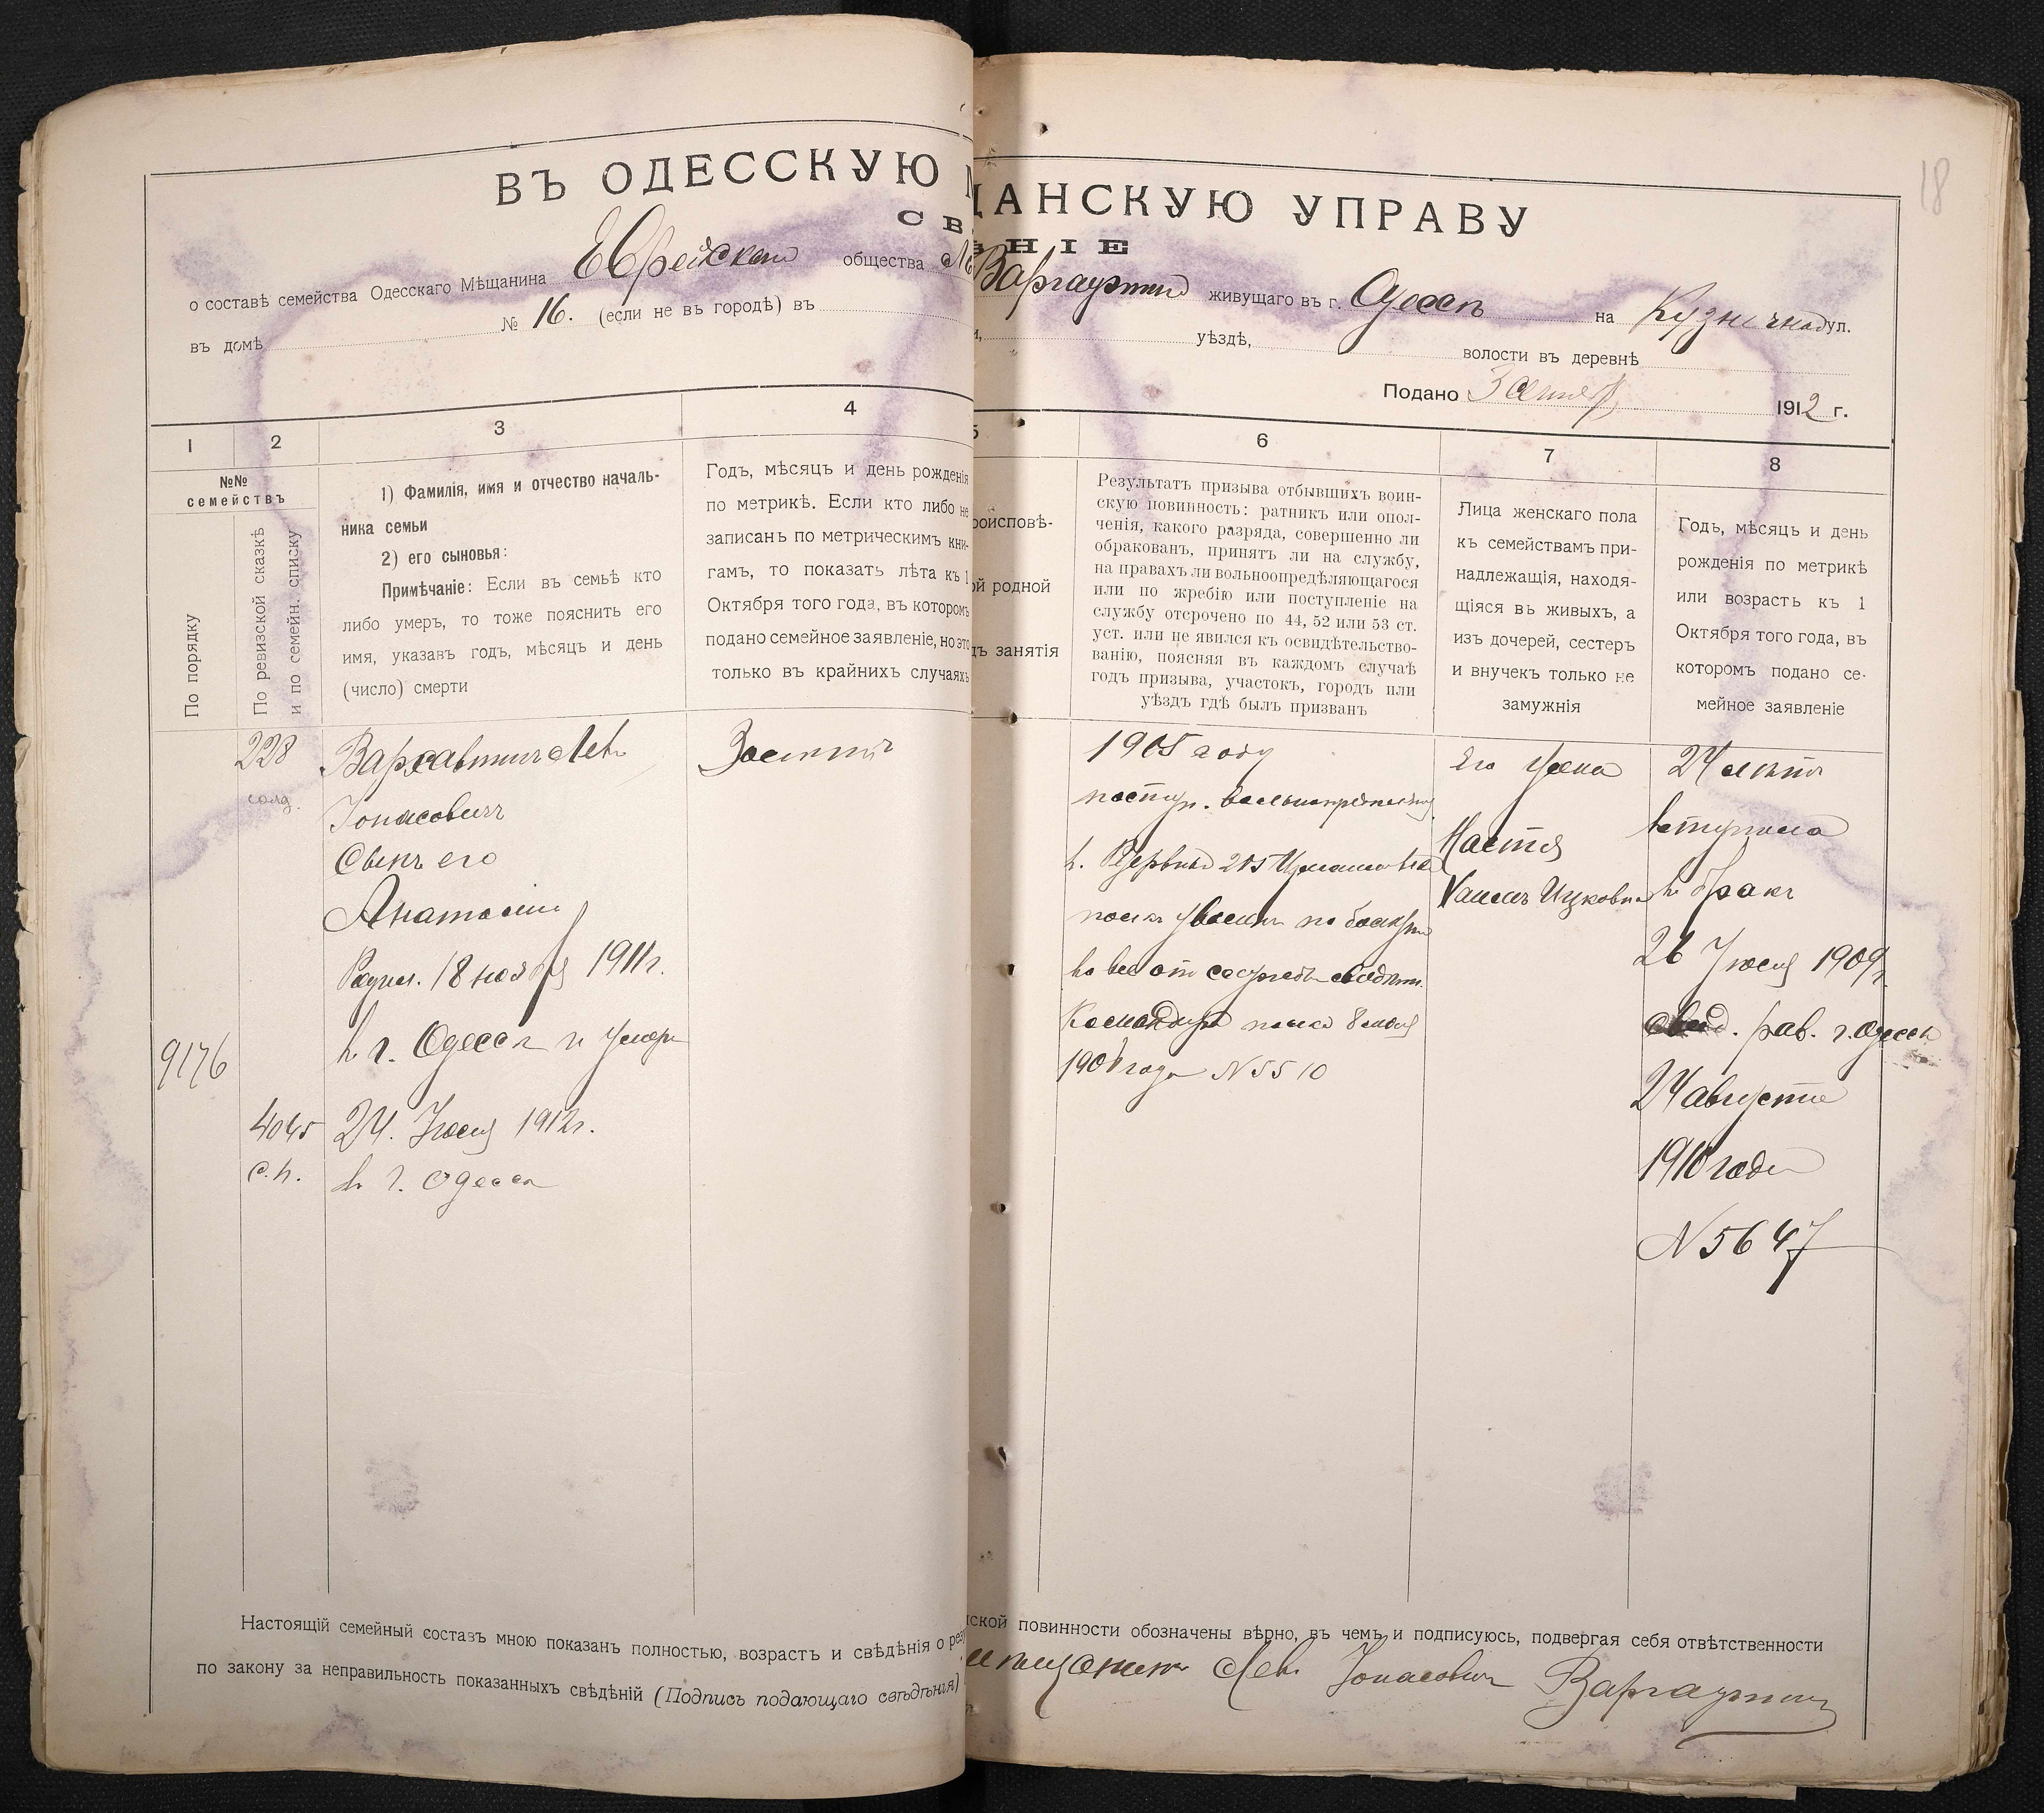 18
ВЪ ОДЕССКУЮ
ЩАНСКУЮ УПРАВУ
СВ
ѢНІЕ
о составѣ семейства Одесскаго Мѣщанина Еврейскаго общества
живущаго въ г. Одессѣ на Кузнечной ул.
въ домѣ № 16. (если не въ городѣ) въ
уѣздѣ, волости въ деревнѣ
Подано 3 1912 г.
1
2
3
4
5
6
7
8
№№
семействъ
По порядку
По ревизской сказкѣ
и по семейн. списку
1) Фамилія, имя и отчество началь-
ника семьи
2) его сыновья:
Примѣчаніе: Если въ семьѣ кто
либо умеръ, то тоже пояснить его
имя, указавъ годъ, мѣсяцъ и день
(число) смерти
Годъ, мѣсяцъ и день рожденія
по метрикѣ. Если кто либо не
записанъ по метрическимъ кни-
гамъ, то показать лѣта къ 1
Октября того года, въ которомъ
подано семейное заявленіе, но это
только въ крайнихъ случаяхъ
роисповѣ-
ой родной
дъ занятія
Результатъ призыва отбывшихъ воин-
скую повинность: ратникъ или опол-
ченія, какого разряда, совершенно ли
обракованъ, принятъ ли на службу,
на правахъ ли вольноопредѣляющагося
или по жребію или поступленіе на
службу отсрочено по 44, 52 или 53 ст.
уст. или не явился къ освидѣтельство-
ванію, поясняя въ каждомъ случаѣ
годъ призыва, участокъ, городъ или
уѣздъ гдѣ былъ призванъ
Лица женскаго пола
къ семействамъ при-
надлежащія, находя-
щіяся въ живыхъ, а
изъ дочерей, сестеръ
и внучекъ только не
замужнія
Годъ, мѣсяцъ и день
рожденія по метрикѣ
или возрастъ къ 1
Октября того года, въ
которомъ подано се-
мейное заявленіе
228
Левъ
Іонасовичъ
Сынъ его
Анатолій
Родил. 18 ноября 1911 г.
въ г. Одессѣ и умеръ
9176
24. Іюля 1912 г.
въ г. Одессѣ
4045
с.п.
1905 году
поступ.
в. Резервный 205 Измаильскій
полкъ уволенъ по болѣзни
Командира полка
года N 5510
Его жена
Настя
24 лѣтъ
вступила
въ бракъ
26 Іюля 1909 г.
рав. г. Одессы
24 августа
1910 года
N 5647
Настоящій семейный составъ мною показанъ полностью, возрастъ и свѣдѣнія о рез
ской повинности обозначены вѣрно, въ чемъ и подписуюсь, подвергая себя отвѣтственности
по закону за неправильность показанныхъ свѣдѣній (Подпись подающаго свѣдѣнія)
Левъ Іонасовичъ